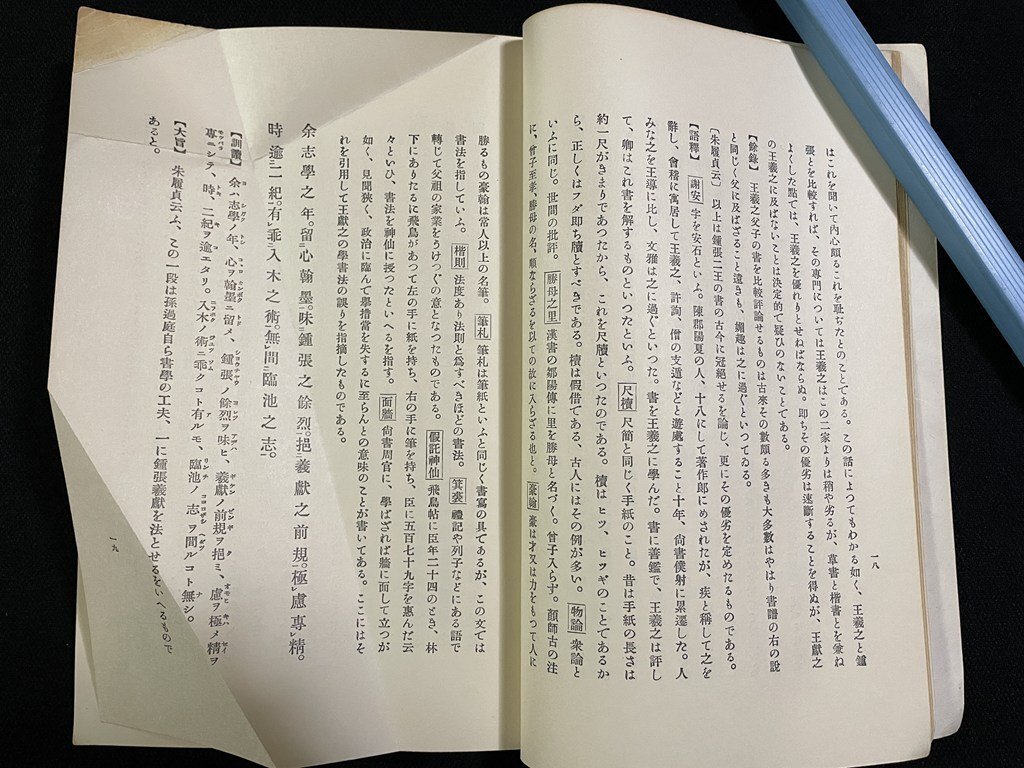 はこれを聞いて内心頗るこれを耻ぢたとのことである。この話によつてもわかる如く、王羲之と鍾
張とを比較すれば、その專門については王羲之はこの二家よりは稍や劣るが、草書と楷書とを兼ね
よくした點では、王羲之を優れりとせねばならぬ。即ちその優劣は速斷することを得ぬが、王獻之
の王羲之に及ばないことは決定的で疑ひのないことである。
【餘錄】 王羲之父子の書を比較評論せるものは古來その數頗る多きも大多數はやはり書譜の右の說
と同じく父に及ばざること遠きも、媚趣は之に過ぐといつてゐる。
〔朱履貞云〕 以上は鍾張二王の書の古今に冠絕せるを論じ、更にその優劣を定めたるものである。
【語釋】 謝安 字を安石といふ。陳郡陽夏の人、十八にして著作郎にめされたが、疾と稱して之を
辭し、會稽に寓居して王羲之、許詢、僧の支遁などと遊處すること十年、尙書僕射に累遷した。人
みな之を王導に比し、文雅は之に過ぐといつた。書を王羲之に學んだ。書に善鑑で、王羲之は評し
て、卿はこれ書を解するものといつたといふ。 尺牘 尺簡と同じく手紙のこと。昔は手紙の長さは
約一尺がきまりであつたから、これを尺牘といつたのである。檟はヒツ、ヒツギのことであるか
ら、正しくはフダ即ち牘とすべきである。檟は假借である、古人にはその例が多い。 物論 衆論と
いふに同じ。世間の批評。 勝母之里 漢書の鄒陽傳に里を勝母と名づく。曾子入らず。顏師古の注
に、曾子至孝、勝母の名、順ならざるを以ての故に入らざる也と。 豪翰 豪は才又は力をもつて人に
一八
勝るもの豪翰は常人以上の名筆。 筆札 筆札は筆紙といふと同じく書寫の具であるが、この文では
書法を指していふ。 楷則 法度あり法則と爲すべきほどの書法。 箕裘 禮記や列子などにある語で
轉じて父祖の家業をうけつぐの意となつたものである。 假託神仙 飛鳥帖に臣年二十四のとき、林
下にありたるに飛鳥があつて左の手に紙を持ち、右の手に筆を持ち、臣に五百七十九字を惠んだ云
々といひ、書法を神仙に授つたといへるを指す。 面牆 尙書周官に、學ばざれば牆に面して立つが
如く、見聞狹く、政治に臨んで擧措當を失するに至らんとの意味のことが書いてある。ここにはそ
れを引用して王獻之の學書法の誤りを指摘したものである。
余志學之年。留心翰墨。味鍾張之餘烈。挹羲獻之前規。極慮專精。
時逾二紀。有乖入木之術。無間臨池之志。
【訓讀】 余ハ志學ノ年、心ヲ翰墨ニ留メ、鍾張ノ餘烈ヲ味ヒ、羲獻ノ前規ヲ挹ミ、慮ヲ極メ精ヲ
專ニシテ、時、二紀ヲ逾エタリ。入木ノ術ニ乖クコト有ルモ、臨池ノ志ヲ間ルコト無シ。
【大旨】 朱履貞云ふ、この一段は孫過庭自ら書學の工夫、一に鍾張羲獻を法とせるをいへるもので
あると。
一九